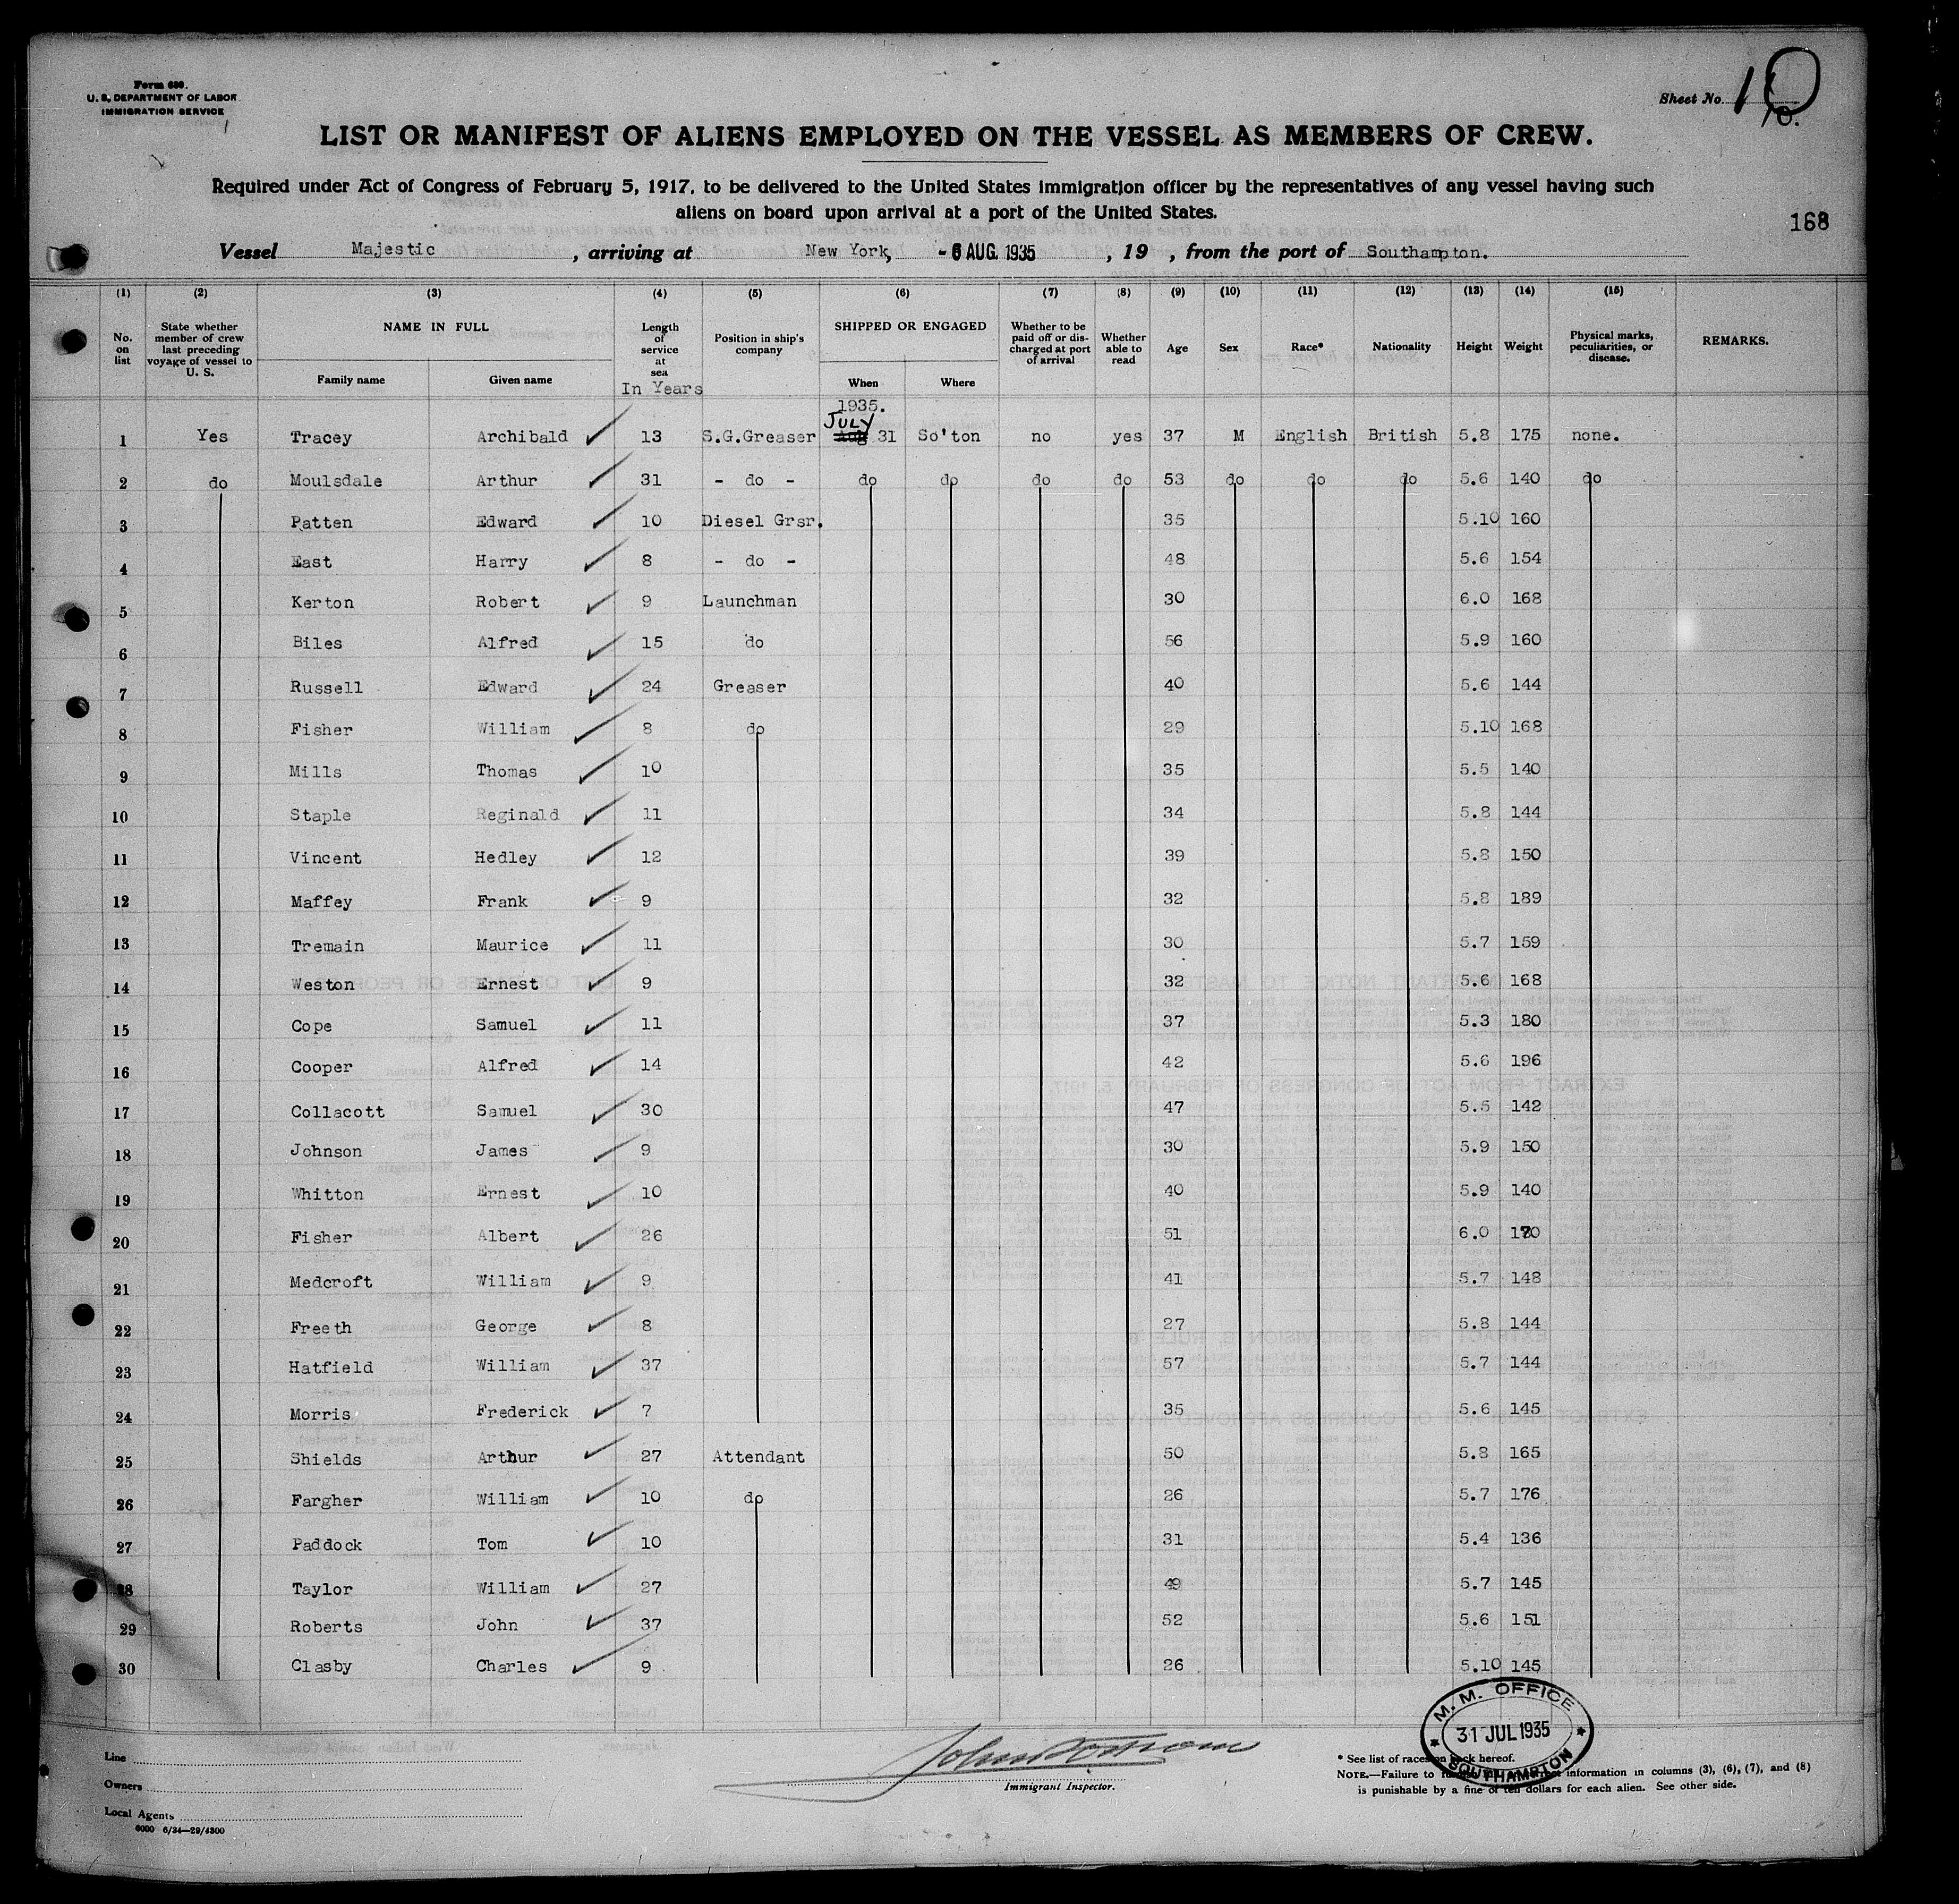 Form 680.
U. S. DEPARTMENT OF LABOR
IMMIGRATION SERVICE
Sheet No. 10
10.
LIST OR MANIFEST OF ALIENS EMPLOYED ON THE VESSEL AS MEMBERS OF CREW.
Required under Act of Congress of February 5, 1917, to be delivered to the United States immigration officer by the representatives of any vessel having such
aliens on board upon arrival at a port of the United States.
168
Vessel Majestic , arriving at New York, - 6 AUG. 1935 , 19 , from the port of Southampton.
(1) (2) (3) (4) (5) (6) (7) (8) (9) (10) (11) (12) (13) (14) (15)
No. on list State whether member of crew last preceding voyage of vessel to U. S. NAME IN FULL Family name Given name Length of service at sea In Years Position in ship's company SHIPPED OR ENGAGED When Where Whether to be paid off or discharged at port of arrival Whether able to read Age Sex Race* Nationality Height Weight Physical marks, peculiarities, or disease. REMARKS.
1935.
JULY
1 Yes Tracey Archibald 13 S.G.Greaser Aug 31 So'ton no yes 37 M English British 5.8 175 none.
2 do Moulsdale Arthur 31 - do - do do do do 53 do do do 5.6 140 do
3 Patten Edward 10 Diesel Grsr. 35 5.10 160
4 East Harry 8 - do - 48 5.6 154
5 Kerton Robert 9 Launchman 30 6.0 168
6 Biles Alfred 15 do 56 5.9 160
7 Russell Edward 24 Greaser 40 5.6 144
8 Fisher William 8 do 29 5.10 168
9 Mills Thomas 10 35 5.5 140
10 Staple Reginald 11 34 5.8 144
11 Vincent Hedley 12 39 5.8 150
12 Maffey Frank 9 32 5.8 189
13 Tremain Maurice 11 30 5.7 159
14 Weston Ernest 9 32 5.6 168
15 Cope Samuel 11 37 5.3 180
16 Cooper Alfred 14 42 5.6 196
17 Collacott Samuel 30 47 5.5 142
18 Johnson James 9 30 5.9 150
19 Whitton Ernest 10 40 5.9 140
20 Fisher Albert 26 51 6.0 170
21 Medcroft William 9 41 5.7 148
22 Freeth George 8 27 5.8 144
23 Hatfield William 37 57 5.7 144
24 Morris Frederick 7 35 5.6 145
25 Shields Arthur 27 Attendant 50 5.8 165
26 Fargher William 10 do 26 5.7 176
27 Paddock Tom 10 31 5.4 136
28 Taylor William 27 49 5.7 145
29 Roberts John 37 52 5.6 151
30 Clasby Charles 9 26 5.10 145
M. M. OFFICE
31 JUL 1935
SOUTHAMPTON
Line
Owners
Local Agents
6000 6/34—29/4300
Immigrant Inspector.
* See list of races on back hereof.
NOTE.—Failure to information in columns (3), (6), (7), and (8)
is punishable by a fine of ten dollars for each alien. See other side.